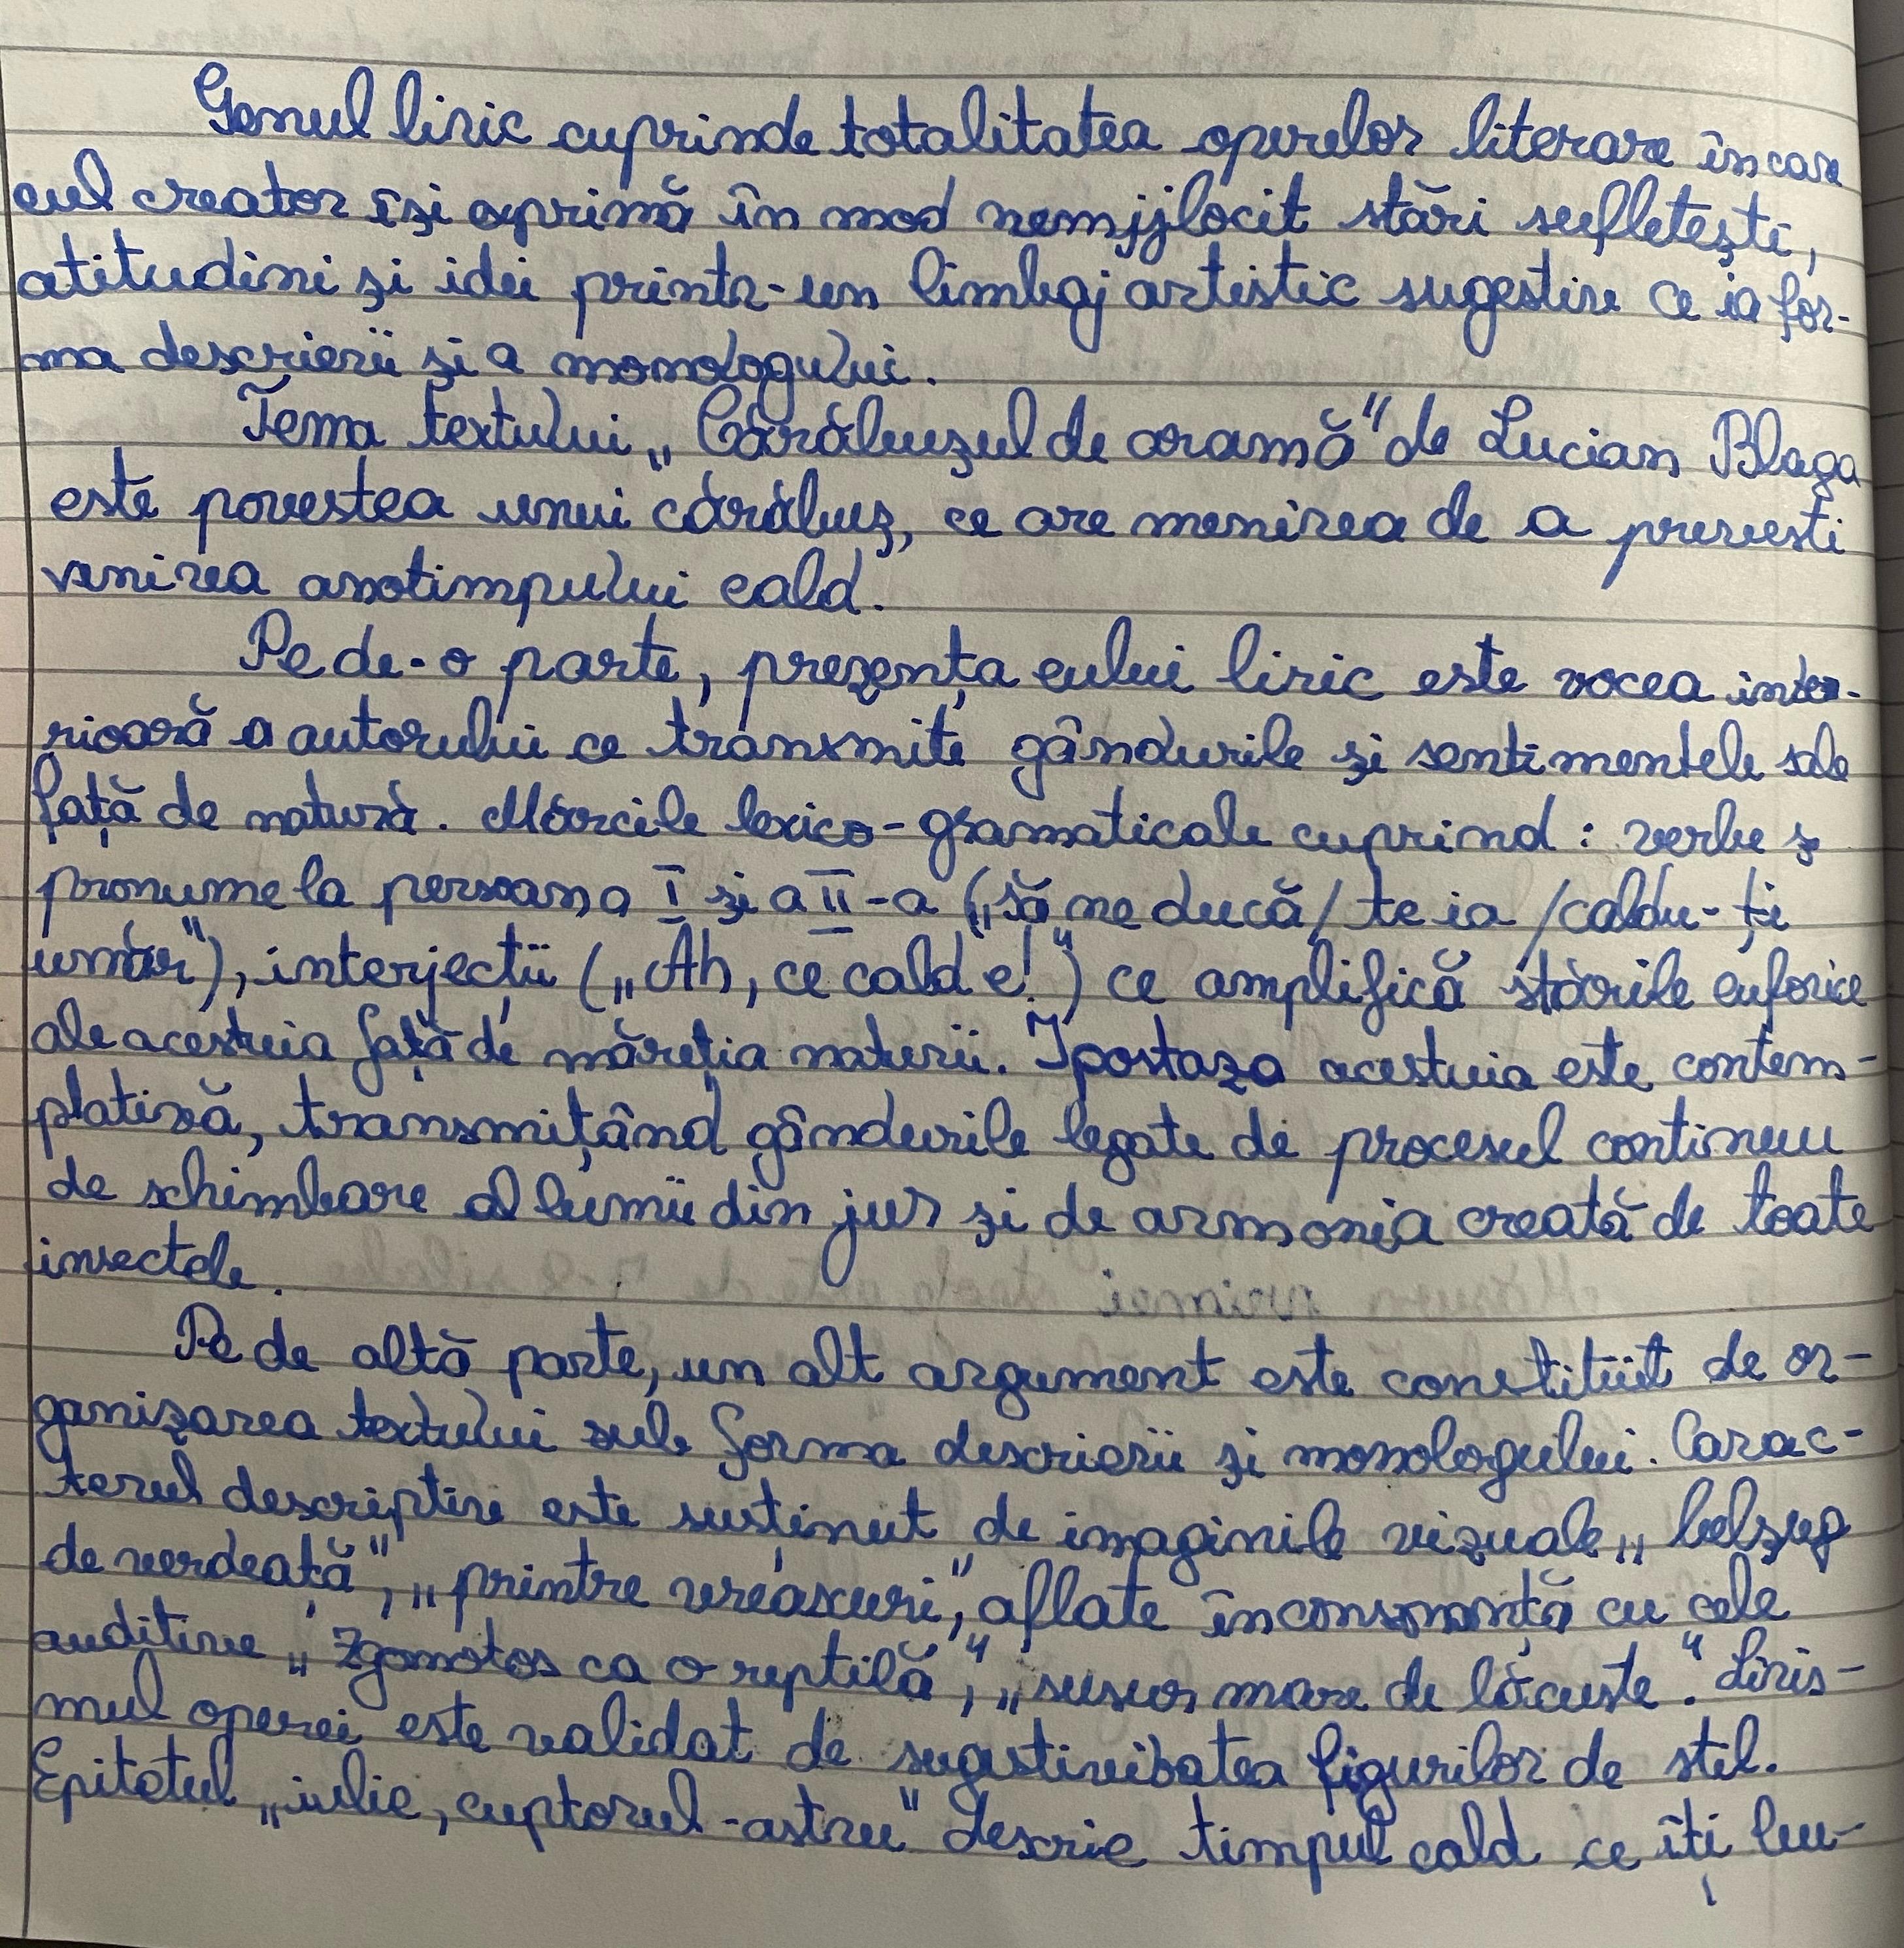 Genul liric cuprinde totalitatea operelor literare în care
eul creator își exprimă în mod nemijlocit stări sufletești,
atitudini și idei printr-un limbaj artistic sugestiv ce ia for-
ma descrierii și a monologului.
Tema textului „Cărăbușul de aramă" de Lucian Blaga
este povestea unui cărăbuș, ce are menirea de a prevesti
venirea anotimpului cald.
Pe de-o parte, prezența eului liric este vocea inte-
rioară a autorului ce transmite gândurile și sentimentele sale
față de natură. Mărcile lexico-gramaticale cuprind: verbe ș
pronume la persoana I și a II-a („să ne ducă/te ia/caldu-ți
umăr"), interjecții („Ah, ce cald e!") ce amplifică stările euforice
ale acestuia față de măreția naturii. Ipostaza acestuia este contem-
plativă, transmițând gândurile legate de procesul continuu
de schimbare al lumii din jur și de armonia creată de toate
insectele.
Pe de altă parte, un alt argument este constituit de or-
ganizarea textului sub forma descrierii și monologului. Carac-
terul descriptiv este susținut de imaginile vizuale „belșug
de verdeață", „printre vreascuri", aflate în consonanță cu cele
auditive „zgomotos ca o reptilă", „susur mare de lăcuste". Liris-
mul operei este validat de sugestivitatea figurilor de stil.
Epitetul „iulie, cuptorul-astru" descrie timpul cald ce îți lu-